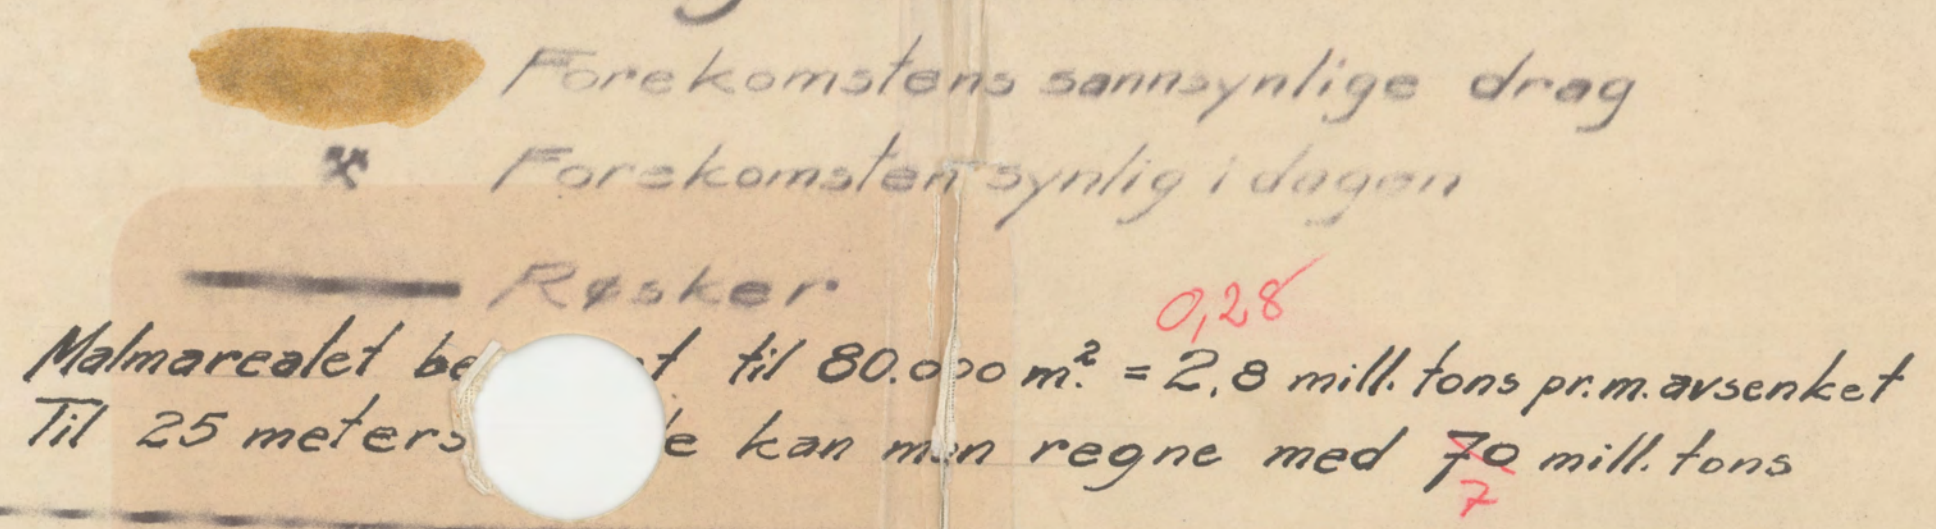 Forekomstens sannsynlige drag
Forekomsten synlig i dagen
Røsker
0,28
Malmarealet til 80.000 m.² = 2,8 mill. tons pr. m. avsenket
Til 25 meters kan man regne med 70 mill. tons
7